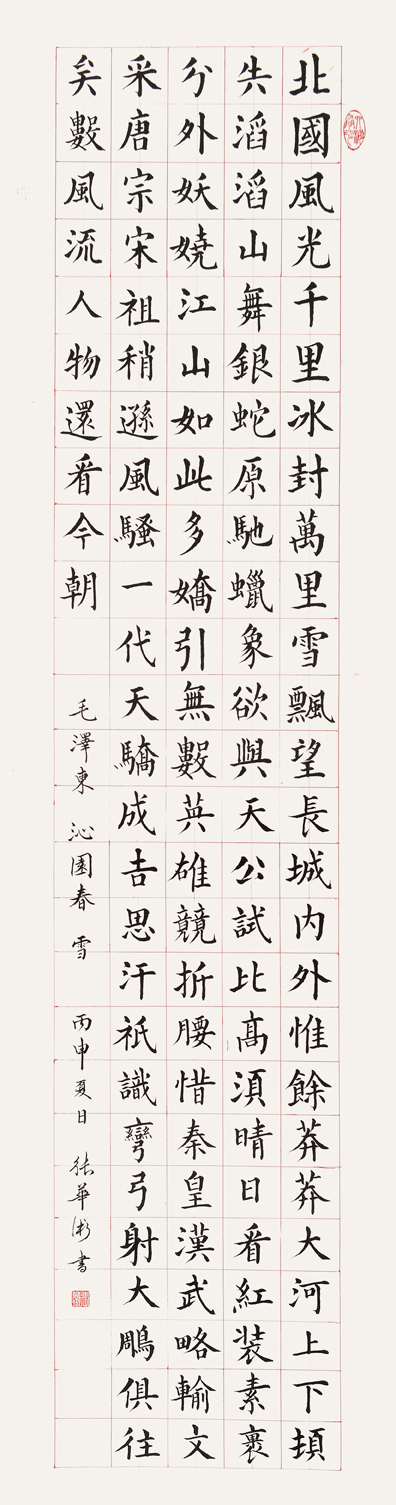 北國風光千里冰封萬里雪飄望長城内外惟餘莽莽大河上下頓
失滔滔山舞銀蛇原馳蠟象欲與天公試比高須晴日看紅裝素裹
分外妖嬈江山如此多嬌引無數英雄競折腰惜秦皇漢武略輸文
采唐宗宋祖稍遜風騷一代天驕成吉思汗祇識彎弓射大鵰俱往
矣數風流人物還看今朝
毛澤東 沁園春 雪 丙申夏日 華書